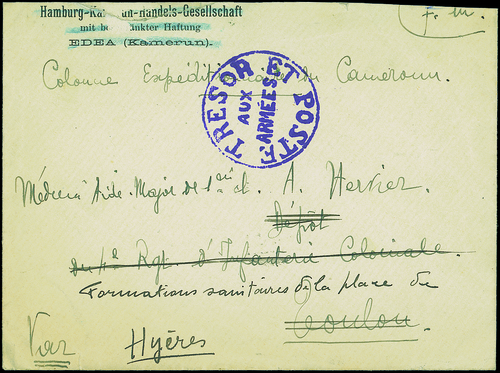 Hamburg-Kamerun-Handels-Gesellschaft
mit beschränkter Haftung
EDEA (Kamerun).
F. M.
Colonne Expéditionnaire du Cameroun.
TRESOR ET POSTES
AUX
ARMÉES
Médecin Aide-Major de 1ère cl. A. Hervier.
Dépôt
du 4e Rgt. d'Infanterie Coloniale.
Formations sanitaires de la place de
Toulon.
Var Hyères